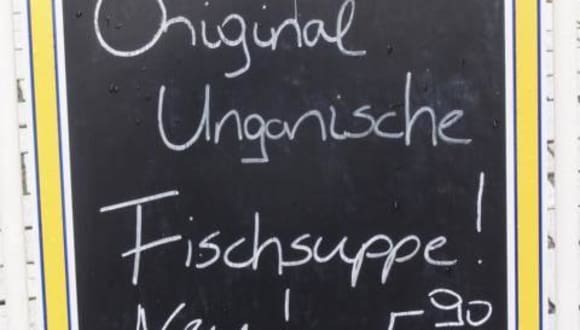 Original
Ungarische
Fischsuppe!
Neu! 5,90